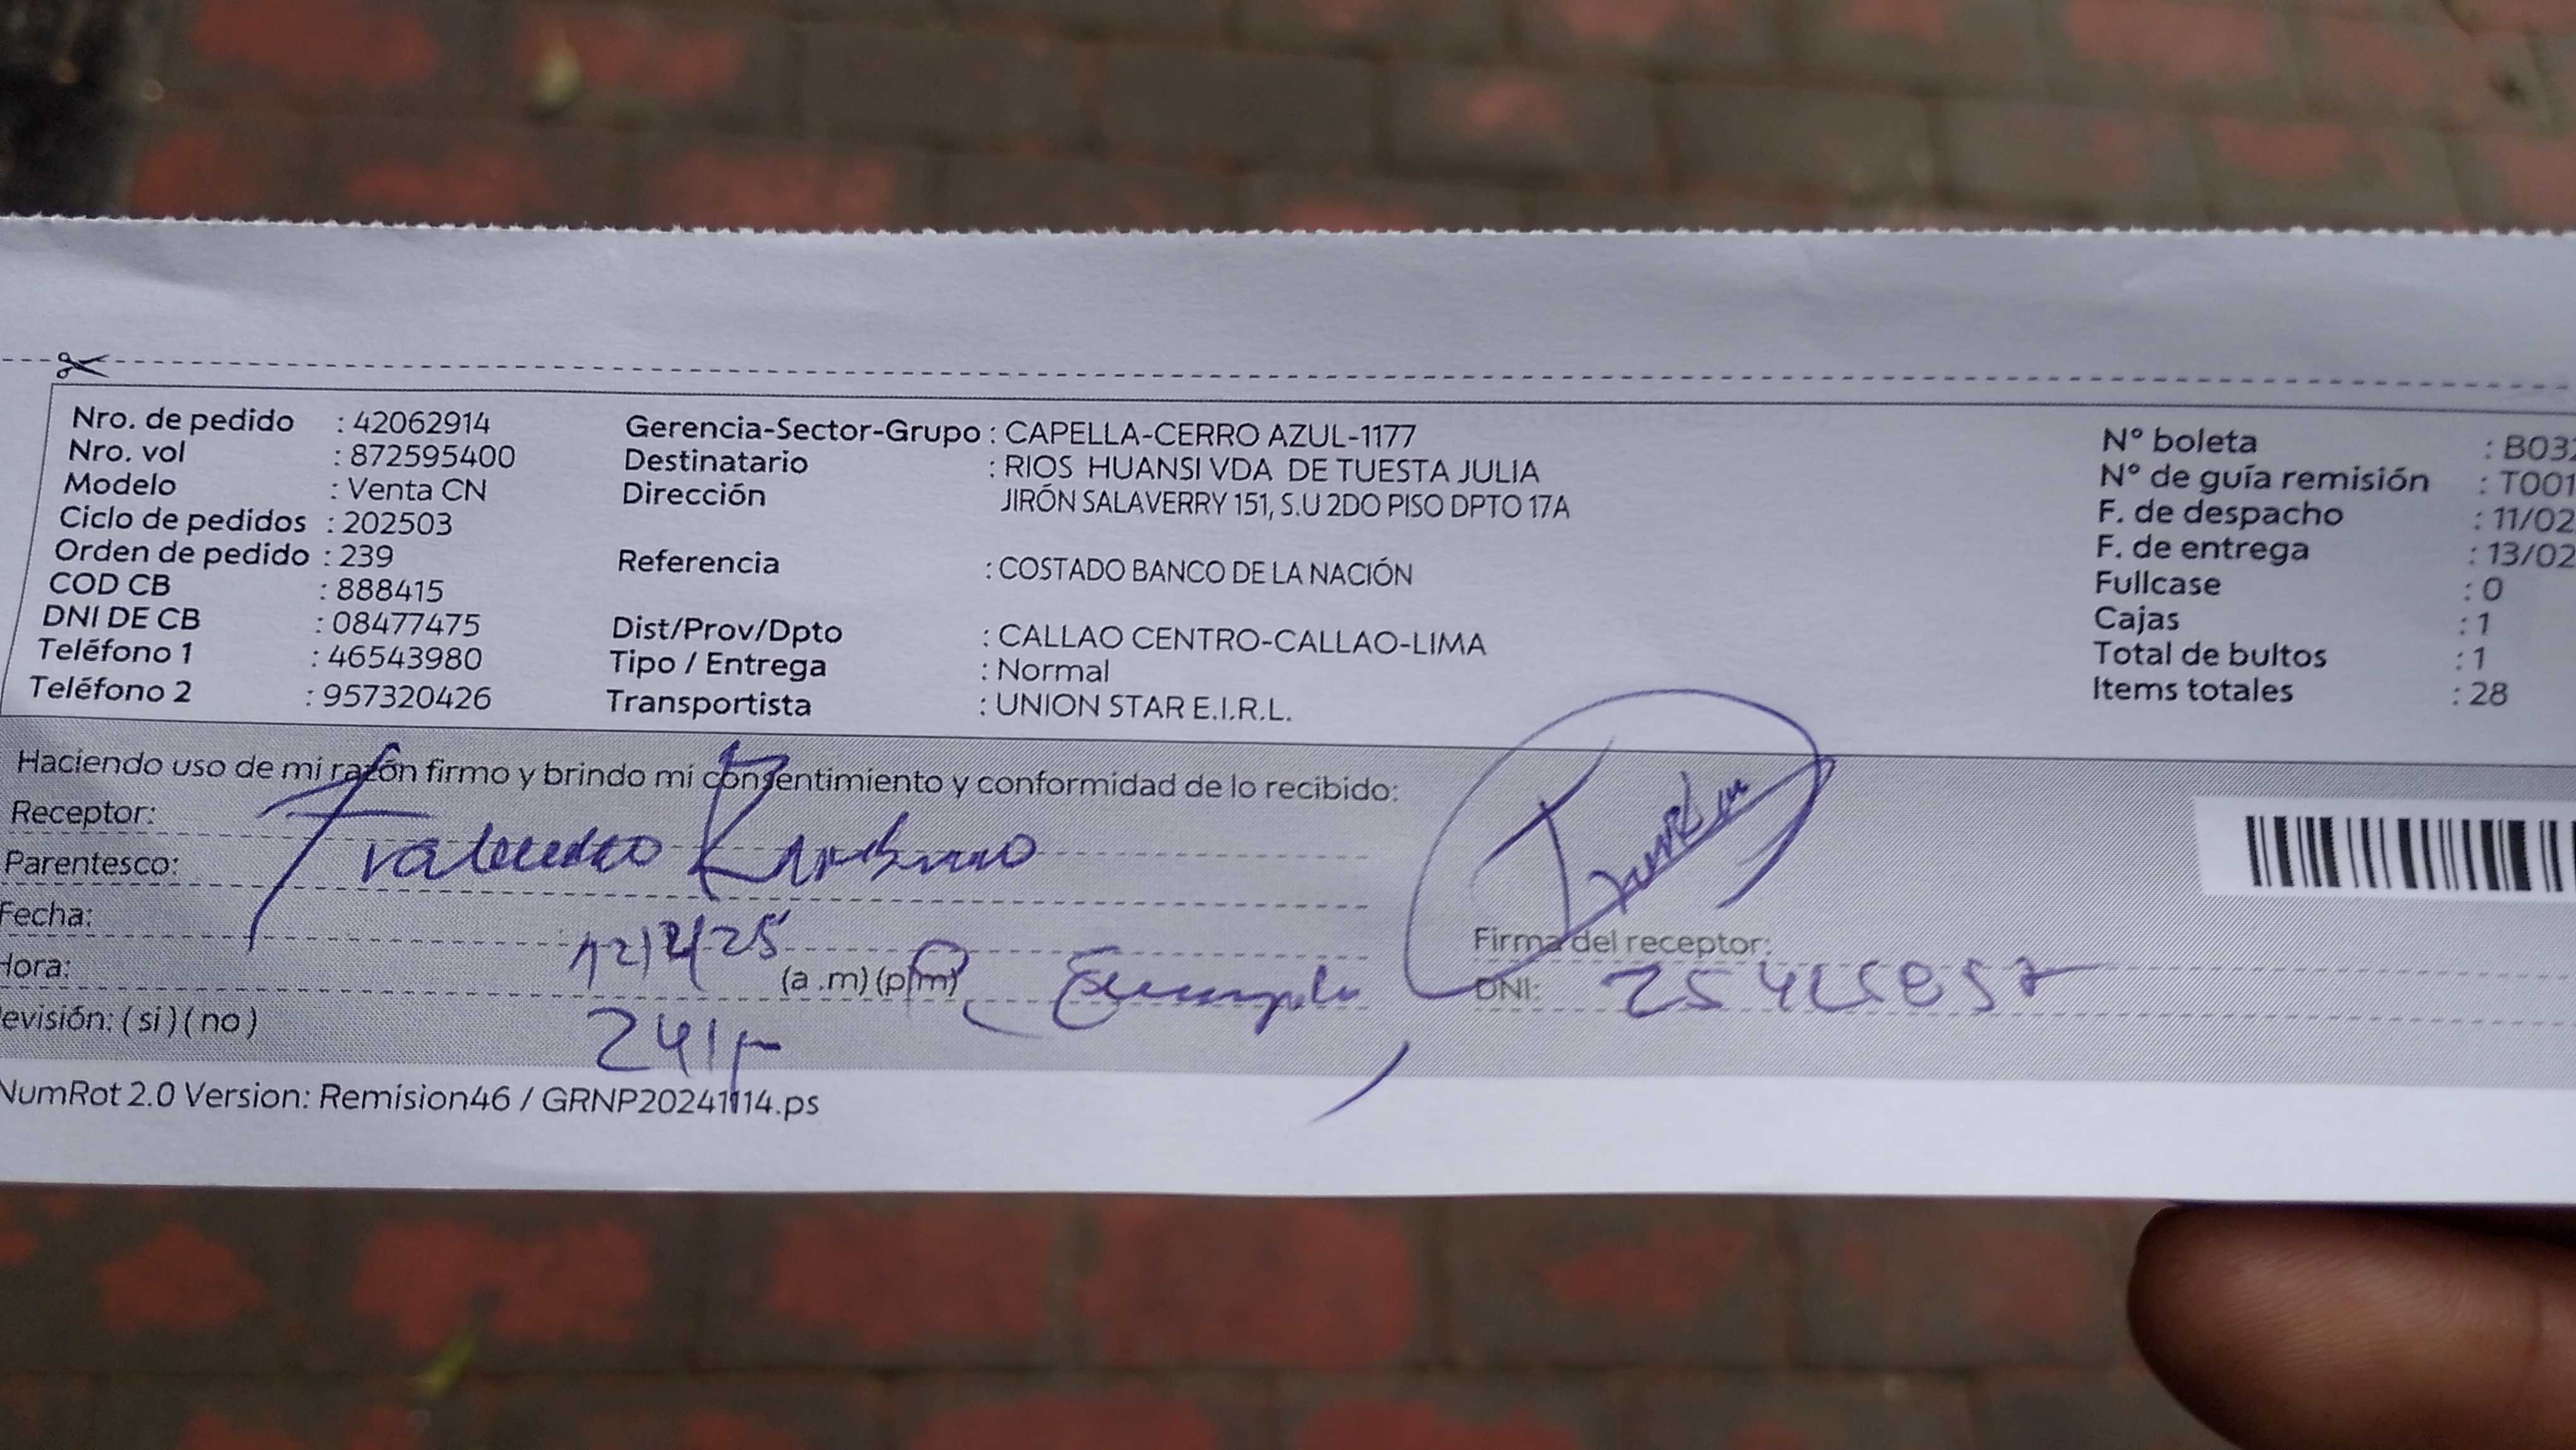 Nro. de pedido : 42062914
Nro. vol : 872595400
Modelo : Venta CN
Ciclo de pedidos : 202503
Orden de pedido : 239
COD CB : 888415
DNI DE CB : 08477475
Teléfono 1 : 46543980
Teléfono 2 : 957320426
Gerencia-Sector-Grupo : CAPELLA-CERRO AZUL-1177
Destinatario : RIOS HUANSI VDA DE TUESTA JULIA
Dirección JIRÓN SALAVERRY 151, S.U 2DO PISO DPTO 17A
Referencia : COSTADO BANCO DE LA NACIÓN
Dist/Prov/Dpto : CALLAO CENTRO-CALLAO-LIMA
Tipo / Entrega : Normal
Transportista : UNION STAR E.I.R.L.
N° boleta : B03
N° de guía remisión : T001
F. de despacho : 11/02
F. de entrega : 13/02
Fullcase : 0
Cajas : 1
Total de bultos : 1
Items totales : 28
Haciendo uso de mi razón firmo y brindo mi consentimiento y conformidad de lo recibido:
Receptor:
Parentesco:
Fecha: 12/2/25
Hora: (a .m) (p.m)
evisión: ( si ) ( no ) 241p
Firma del receptor:
DNI:
NumRot 2.0 Version: Remision46 / GRNP20241114.ps